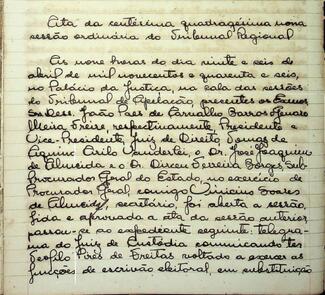 Ata da centésima quadragésima nona
sessão ordinária do Tribunal Regional
Às nove horas do dia vinte e seis de
abril de mil novecentos e quarenta e seis,
no Palácio da Justiça, na sala das sessões
do Tribunal de Apelação, presentes os Exmos
Srs. Des. João Paes de Carvalho Barros
Freire, respectivamente, Presidente e
Vice-Presidente, Juiz de Direito, Tomas de
Aquino Cirilo Wanderlei, o Dr. José Joaquim
de Almeida e o Dr. Dirceu Ferreira Borges, Sub-
Procurador Geral do Estado, no exercício de
Procurador Geral, comigo Vinicius Soares
de Almeida, secretário, foi aberta a sessão,
lida e aprovada a ata da sessão anterior
passou-se ao expediente seguinte: telegra-
ma do Juiz de Custódia comunicando ter
Teofilo Pires de Freitas voltado a exercer as
funções de escrivão eleitoral, em substituição